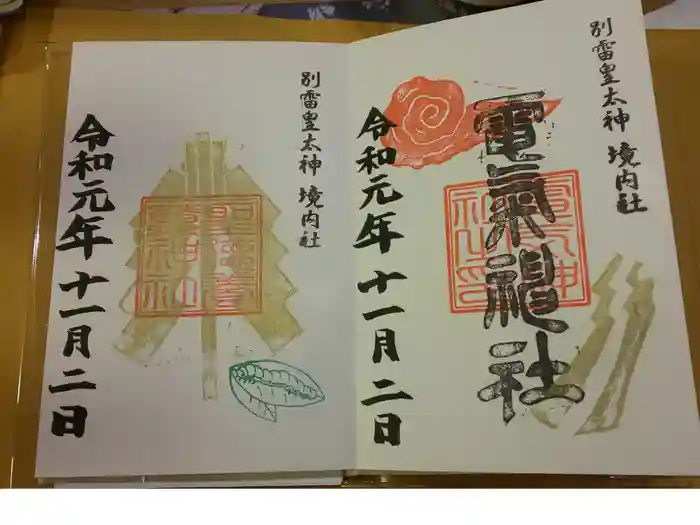 別雷皇太神 境内社
電氣神社
電気神社之印
令和元年 十一月 二日
別雷皇太神 境内社
令和元年 十一月 二日